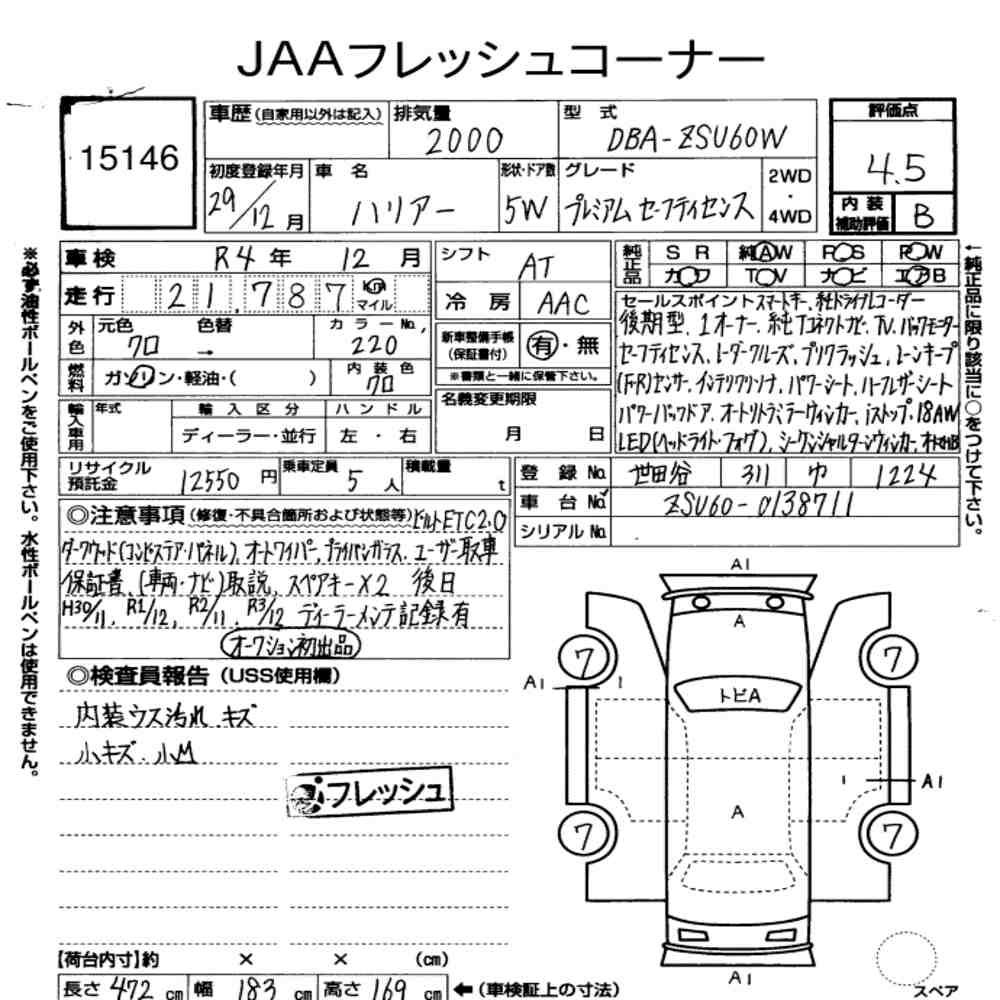 JAAフレッシュコーナー
15146
車歴(自家用以外は記入) 排気量 2000 型 式 DBA-ZSU60W 評価点 4.5
初度登録年月 29/12月 車 名 ハリアー 形状・ドア数 5W グレード プレミアム セーフティセンス 2WD・4WD 内装補助評価 B
※必ず油性ボールペンをご使用下さい。水性ボールペンは使用できません。
車検 R4年 12月 シフト AT
走行 21,787 km マイル 冷房 AAC
外色 元色 クロ 色替 → カラーNo. 220
新車整備手帳(保証書付) 有・無
※書類と一緒に保管下さい。
燃料 ガソリン・軽油・( ) 内装色 クロ
名義変更期限 月 日
輸入車用 年式 輸入区分 ハンドル
ディーラー・並行 左・右
純正品 SR 純AW PS PW
カワ TV ナビ エアB
セールスポイント スマートキー、純ドライブレコーダー
後期型、1オーナー、純TコネクトナビTV、バックモニター
セーフティセンス、レーダークルーズ、プリクラッシュ、レーンキープ
(F・R)センサ、インテリクリソナ、パワーシート、ハーフレザーシート
パワーバックドア、オートリトラミラーウィンカー、iストップ、18AW
LED(ヘッドライト・フォグ)、シーケンシャルターンウィンカー、オートHB
←純正品に限り該当に○をつけて下さい。
リサイクル預託金 12550円 乗車定員 5人 積載量 t
登録No. 世田谷 311 1224
車台No. ZSU60-0138711
シリアルNo.
◎注意事項(修復・不具合箇所および状態等)ビルトETC2.0
ダークウッド(コンビステア・パネル)、オートワイパー、プライバシーガラス、ユーザー取車
保証書、(車両・ナビ)取説、スペアキー×2 後日
H30/11、R1/12、R2/11、R3/12 ディーラーメンテ記録有
オークション初出品
◎検査員報告(USS使用欄)
内装ウス汚れ キズ
小キズ、小M
フレッシュ
A1
A
7 7
A1 1
トビA
1 A1
A
7 7
A1
スペア
【荷台内寸】約 × × (cm)
長さ 472 cm 幅 183 cm 高さ 169 cm ←(車検証上の寸法)